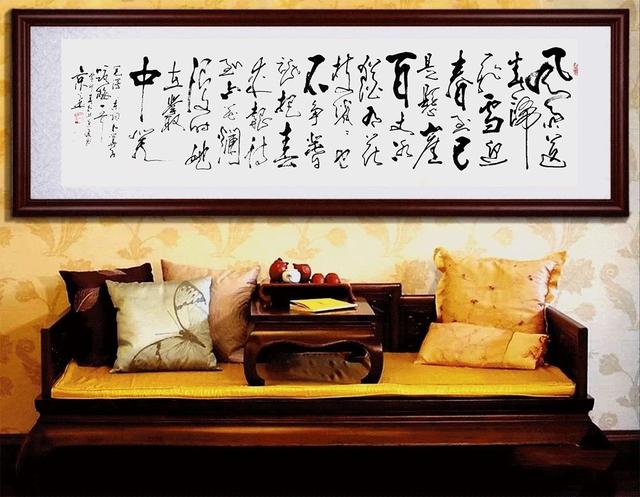 风雨送
春归
飞雪迎
春到已
是悬崖
百丈冰
犹有花
枝俏俏也
不争春
只把春
来报待
到山花烂
漫时她
在丛
中笑
毛泽东词卜算子
咏梅一首